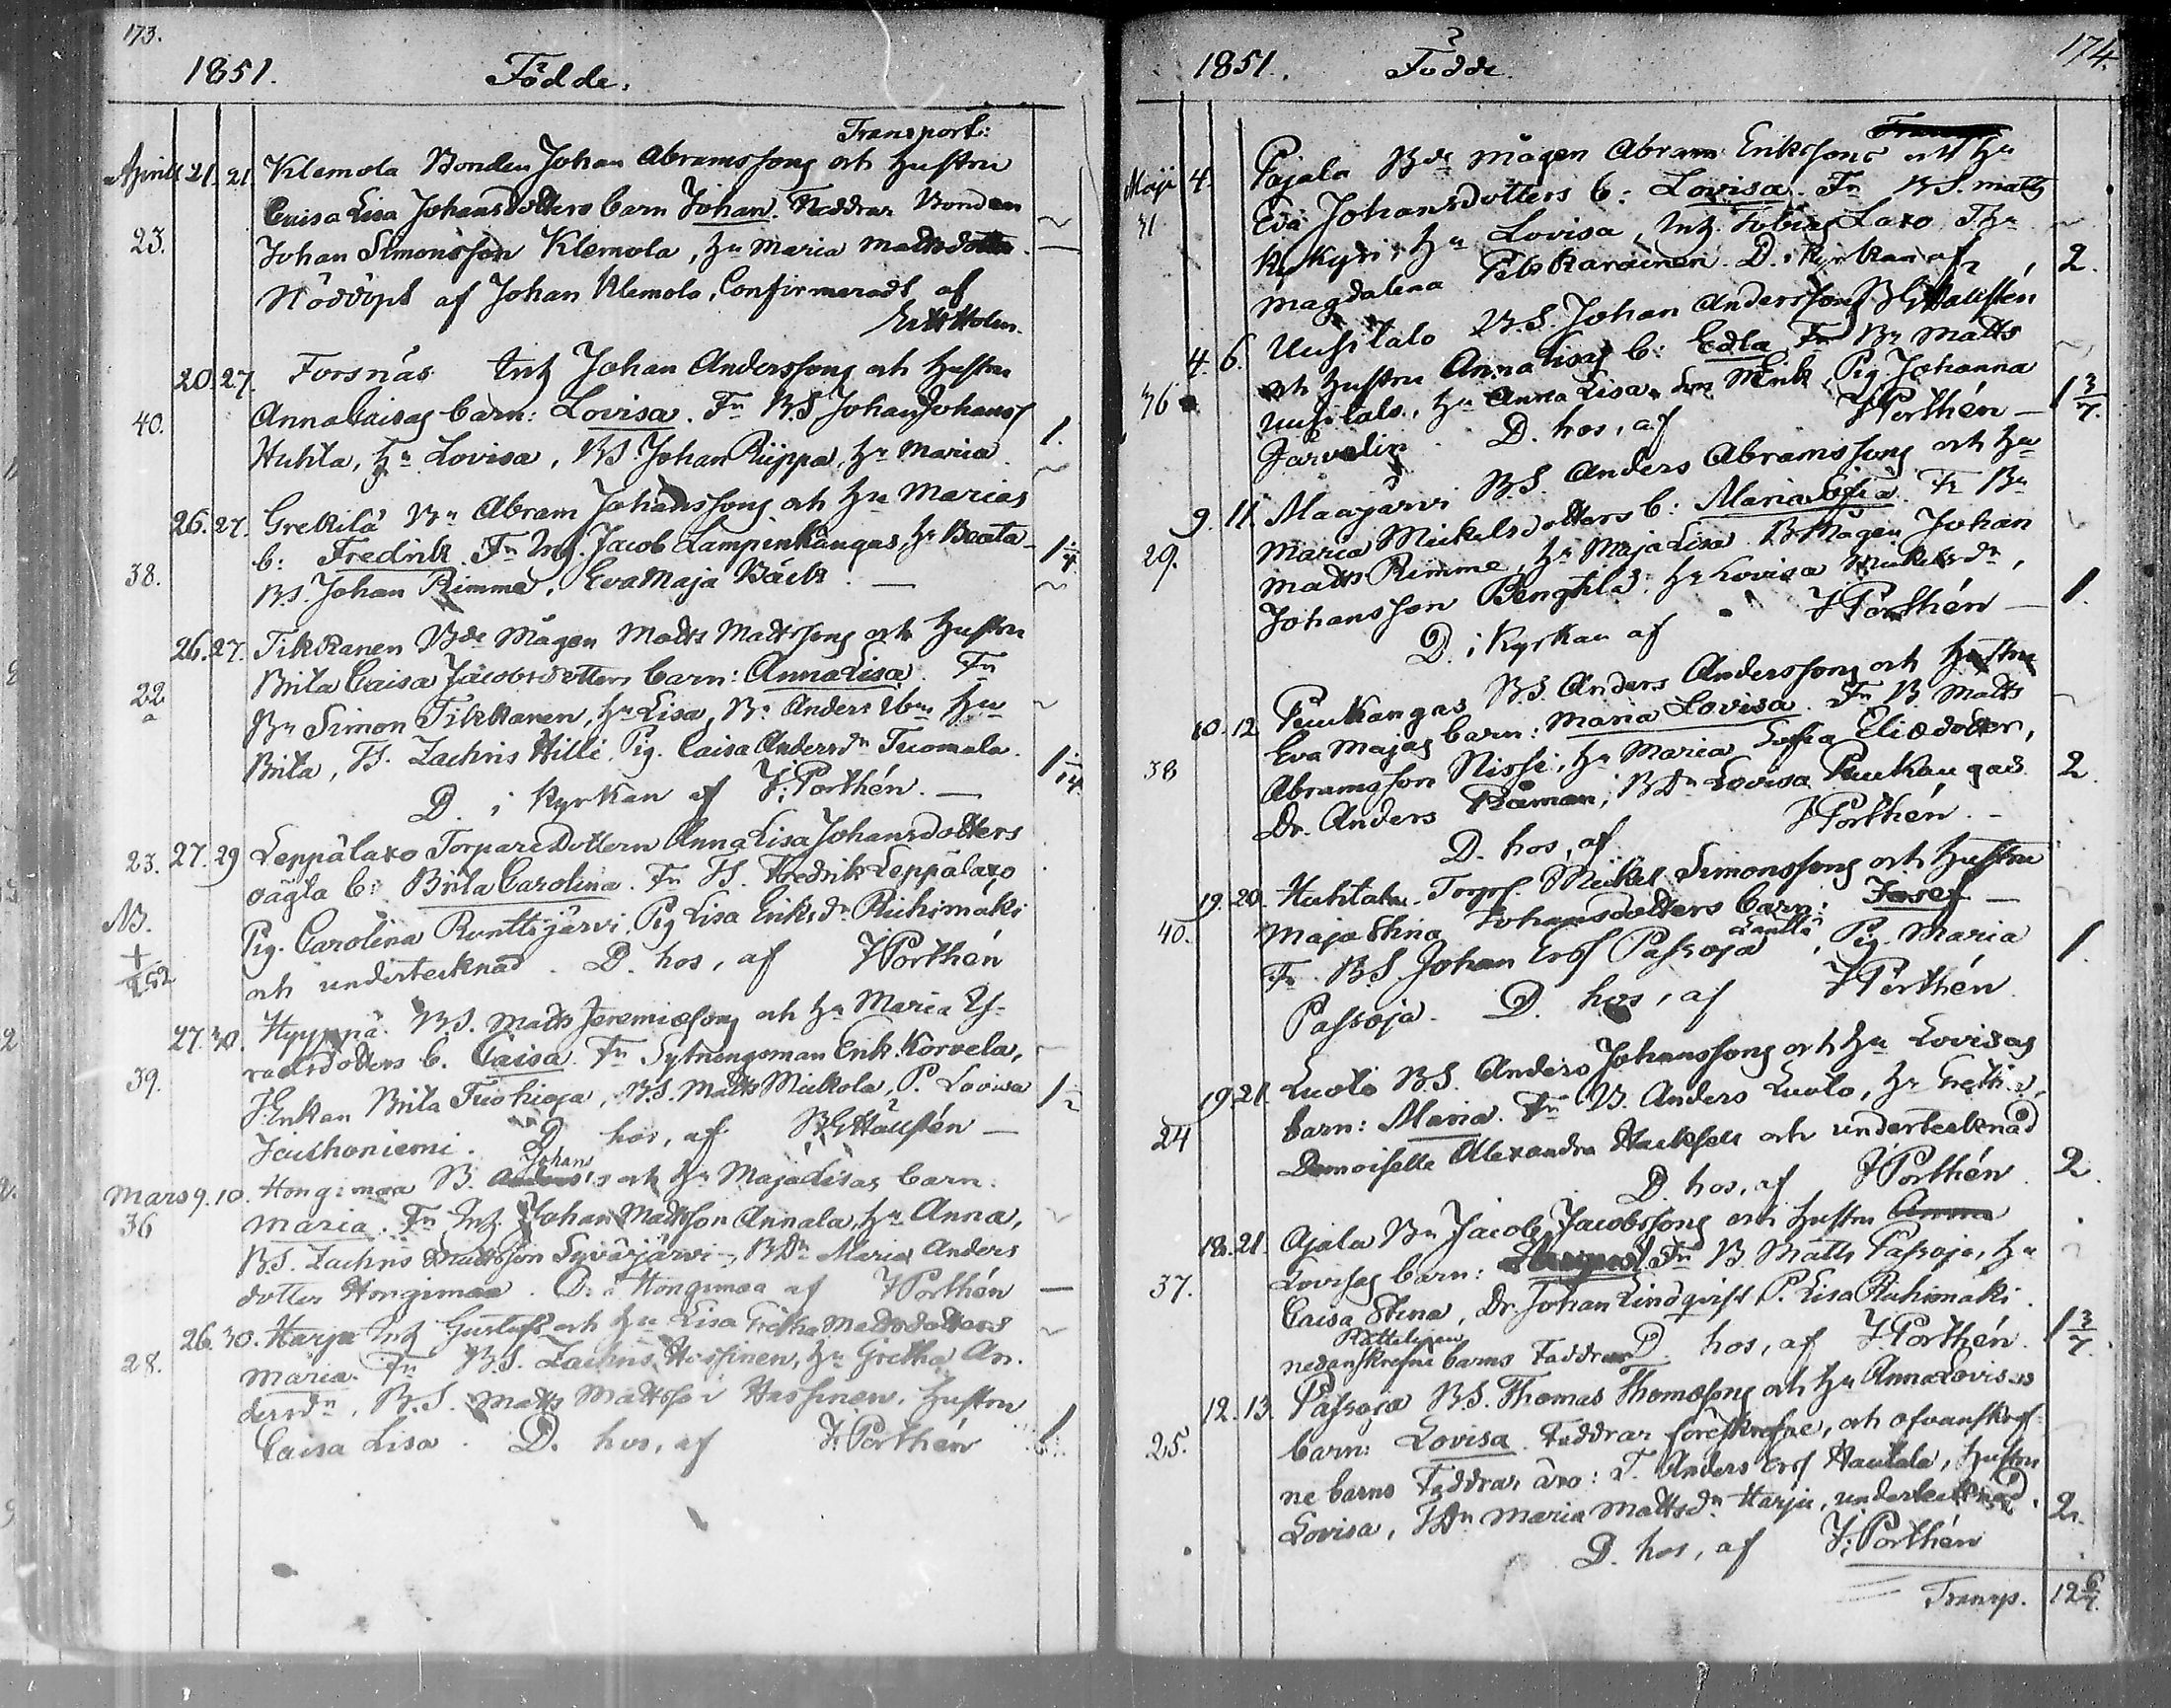 173.
1851. Födde.
Transport:
Aprill 21. 21. Klemola Bonden Johan Abramssons och hustru
Caisa Lisa Johansdotters barn Johan. Faddrar Bonden
23. Johan Simonsson Klemola, Hu Maria Mattsdotter.
Nöddöpt af Johan Klemola, Confirmeradt af
Holm.
20. 27. Forsnäs Inh Johan Anderssons och hustru
Anna Caisas barn: Lovisa. Fr BS Johan Johans
40. Huhta, Hu Lovisa, BS Johan Riippa, Hu Maria 1.
26. 27. Grekilä Bn Abram Johanssons och Hu Marias
b: Fredrik. Fr Inh. Jacob Lampinkangas, Hu Beata
38. B.S. Johan Rimme, Eva Maja Bäck.
26. 27. Tikkanen Bde Mågen Matts Mattssons och hustru
Brita Caisa Jacobsdotters barn: Anna Lisa. Fr
22 Bn Simon Tikkanen, Hu Lisa, Bn Anders Hu
a
Brita, Zachris Hilli. Pig. Caisa Andersdr Tuomala. 1 1/14
D. i Kyrkan af J: Porthén.
23. 27. 29 Leppälaxo Torpare Dottern Anna Lisa Johansdotters
oägta b: Brita Carolina. Fr Fredrik Leppälaxo
NB. Pig. Carolina Runttijärvi, Pig Lisa Eriksdr Riihimäki
+ och undertecknad. D. hos, af J Porthén
27. 30. Hyyppä. B.S. Matts Jeremiæsons och Hu Maria Is-
raelsdotters b. Caisa. Fr Sytningsman Erik Korvela,
39. Enkan Brita Tuohioja, B.S. Matts Mickola, P. Lovisa 1 1/2
Jauhoniemi. D. hos, af Hällstén
Johans
Mars 9. 10. Hongimaa B. och Hu Maja Lisas barn.
36 Maria. Fr Inh. Johan Mattsson Annala, Hu Anna,
B.S. Zachris Mattsson Syväjärvi, BDr Maria Anders
dotter Hongimaa. D. i Hongimaa af J Porthén
26. 30. Harju Inh Gustafs och Hu Lisa Gretha Mattsdotters
28. Maria. Fr B.S. Zachris Hassinen, Hu Gretha An-
dersdr, B.S. Matts Mattsson Hassinen, hustru
Caisa Lisa. D. hos, af J: Porthén 1
174.
1851. Födde.
Maji 4. Pajala Bde Mågen Abram Erikssons och Hu
Eva Johansdotters b: Lovisa. Fr B.S. Matts
31 Hu Lovisa, Inh. Tobias Laxo
Magdalena D. i Kyrkan af 2.
Hällstén
4. 6. Uusitalo B.S. Johan Anderssons
och hustru Anna Lisas b: Edla. Fr Bn Matts
36 Uusitalo, Hu Anna Lisa, Erik, Pig. Johanna
Järvelin. D. hos, af J Porthén 1 3/7.
9. 11. Maajärvi B.S. Anders Abramssons och Hu
Maria Mickelsdotters b: Maria Sofia. Fr Bn
29. Matts Rimme, Hu Maja Lisa B Mågen Johan
Johansson Pengkilä, Hu Lovisa Mickelsdr,
D. i Kyrkan af J Porthén 1.
10. 12 Puukangas B.S. Anders Anderssons och hustru
Eva Majas barn: Maria Lovisa. Fr B. Matts
38 Abramsson Nissi, Hu Maria Sofia Eliædotter,
Dr. Anders Råman, BDr Lovisa Puukangas 2.
D. hos, af J Porthén.
19. 20. Huhtala Mickel Simonssons och hustru
40. Maja Stina Johansdotters barn: Josef
Fr. B.S. Johan Ersf Passoja, Pig. Maria 1.
Passoja. D. hos, af J Porthén
19. 21. Luoto B.S. Anders Johanssons och Hu Lovisas
24 barn: Maria. Fr B. Anders Luoto, Hu Greta,
Demoiselle Alexandra och undertecknad
D. hos, af J Porthén 2.
18. 21. Ojala Bn Jacob Jacobssons och hustru
Lovisas barn: Fr B Matts Passoja, Hu
37. Caisa Stina, Dr. Johan Lindqvist, P. Lisa Riihimäki.
nedanskrefne barns Faddrar D. hos, af J Porthén. 1 3/7.
12. 13. Passoja B.S. Thomas Thomæsons och Hu Anna Lovisas
25. barn: Lovisa. Faddrar föreskrefne, och ofvanskref-
ne barns Faddrar äro: T. Anders Ersf Hautala, hustru
Lovisa, Maria Mattsdr. Harju, undertecknad. 2.
D. hos, af J: Porthén
Transp. 12 6/7.